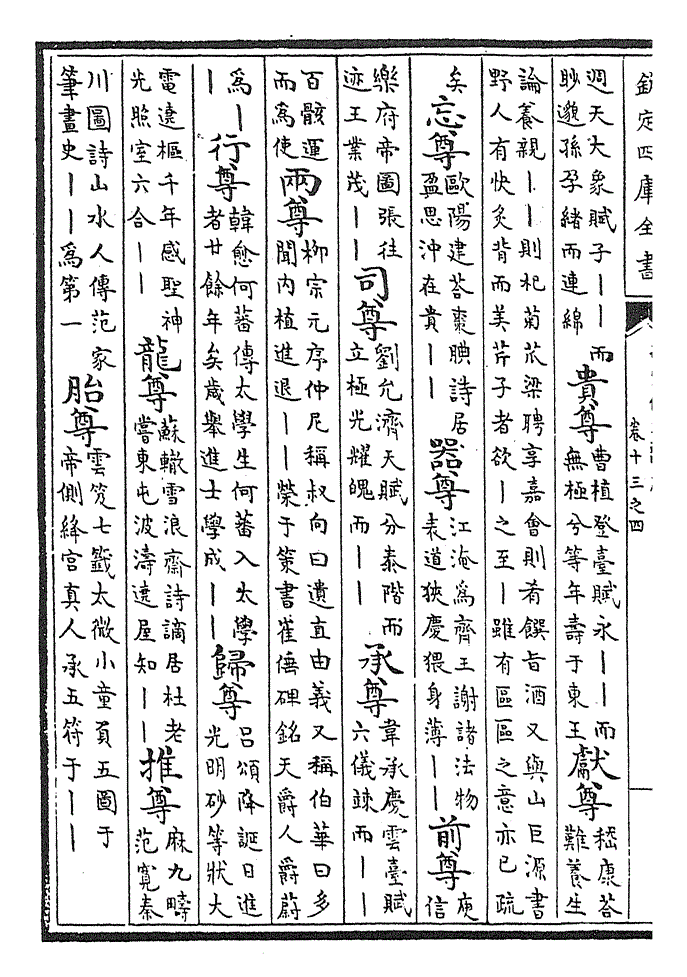 欽定四庫全書
卷十三之四
週天大象賦子丨丨而眇邈孫孕緒而連綿 貴尊 曹植登臺賦永丨丨而無極兮等年壽于東王 獻尊 嵇康荅難養生
論養親丨丨則杞菊苽梁聘享嘉會則肴饌旨酒又與山巨源書野人有快炙背而美芹子者欲丨之至丨雖有區區之意亦已疏
矣 忘尊 歐陽建荅棗腆詩居盈思沖在貴丨丨 器尊 江淹為齊王謝諸法物表道狹慶猥身薄丨丨 前尊 庾信
樂府帝圖張往迹王業茂丨丨 司尊 劉允濟天賦分泰階而立極光耀魄而丨丨 承尊 韋承慶雲臺賦六儀竦而丨丨
百骸運而為使 兩尊 柳宗元序仲尼稱叔向曰遺直由義又稱伯華曰多聞內植進退丨丨榮于策書崔倕碑銘天爵人爵蔚
為丨丨 行尊 韓愈何蕃傳太學生何蕃入太學者廿餘年矣歲舉進士學成丨丨 歸尊 呂頌降誕日進光明砂等狀大
電遶樞千年感聖神光照室六合丨丨 龍尊 蘇轍雪浪齋詩謫居杜老嘗東屯波濤遶屋知丨丨 推尊 麻九疇范寬秦
川圖詩山水人傳范家筆畫史丨丨為第一 胎尊 雲笈七籤太微小童員五圖于帝側絳宮真人承五符于丨丨